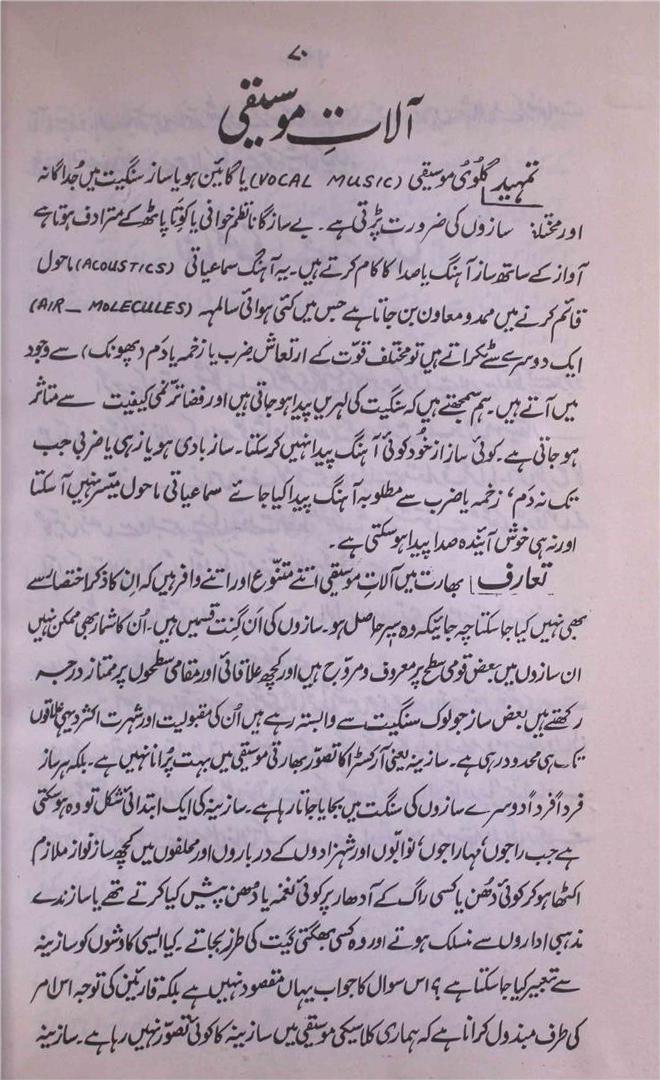 ۷۰
آلاتِ موسیقی
تمہید گلوُی موسیقی (VOCAL MUSIC) یا گائین ہو یا ساز سنگیت میں جُداگانہ
اور مختلف سازوں کی ضرورت پڑتی ہے۔ بے ساز گانا نظم خوانی یا کوِتا پاٹھ کے مترادف ہوتا ہے
آواز کے ساتھ ساز آہنگ یا صدا کا کام کرتے ہیں۔ یہ آہنگ سماعیاتی (ACOUSTICS) ماحول
قائم کرنے میں ممد و معاون بن جاتا ہے جس میں کئی ہوائی سالمہ (AIR _ MOLECULES)
ایک دوسرے سے ٹکراتے ہیں تو مختلف قوت کے ارتعاش ضرب یا زخمہ یا دَم (پھونک) سے وجود
میں آتے ہیں۔ ہم سمجھتے ہیں کہ سنگیت کی لہریں پیدا ہو جاتی ہیں اور فضا ترنمی کیفیت سے متاثر
ہو جاتی ہے۔ کوئی ساز از خود کوئی آہنگ پیدا نہیں کر سکتا۔ ساز بادی ہو یا زہی یا ضربی جب
تک نہ دَم، زخمہ یا ضرب سے مطلوبہ آہنگ پیدا کیا جائے سماعیاتی ماحول میسّر نہیں آ سکتا
اور نہ ہی خوش آیندہ صدا پیدا ہو سکتی ہے۔
تعارف بھارت میں آلاتِ موسیقی اتنے متنوع اور اتنے وافر ہیں کہ اِن کا ذکر اختصار سے
بھی نہیں کیا جا سکتا چہ جائیکہ وہ سیر حاصل ہو۔ سازوں کی اَن گِنت قسمیں ہیں۔ اُن کا شمار بھی ممکن نہیں
ان سازوں میں بعض قومی سطح پر معروف و مروّج ہیں اور کچھ علاقائی اور مقامی سطحوں پر ممتاز درجہ
رکھتے ہیں بعض ساز جو لوک سنگیت سے وابستہ رہے ہیں اُن کی مقبولیت اور شہرت اکثر دیہی علاقوں
تک ہی محدود رہی ہے۔ سازینہ یعنی آرکسٹرا کا تصوّر بھارتی موسیقی میں بہت پُرانا نہیں ہے۔ بلکہ ہر ساز
فرداً فرداً دوسرے سازوں کی سنگت میں بجایا جاتا رہا ہے۔ سازینہ کی ایک ابتدائی شکل تو وہ ہو سکتی
ہے جب راجوں، مہاراجوں، نوابوں اور شہزادوں کے درباروں اور محفلوں میں کچھ ساز نواز ملازم
اکٹھا ہو کر کوئی دُھن یا کسی راگ کے آدھار پر کوئی نغمہ یا دُھن پیش کیا کرتے تھے یا سازندے
مذہبی اداروں سے منسلک ہوتے اور وہ کسی بھگتی گیت کی طرز بجاتے۔ کیا ایسی کاوشوں کو سازینہ
سے تعبیر کیا جا سکتا ہے؟ اس سوال کا جواب یہاں مقصود نہیں ہے بلکہ قارئین کی توجہ اس امر
کی طرف مبذول کرانا ہے کہ ہماری کلاسیکی موسیقی میں سازینہ کا کوئی تصوّر نہیں رہا ہے۔ سازینہ